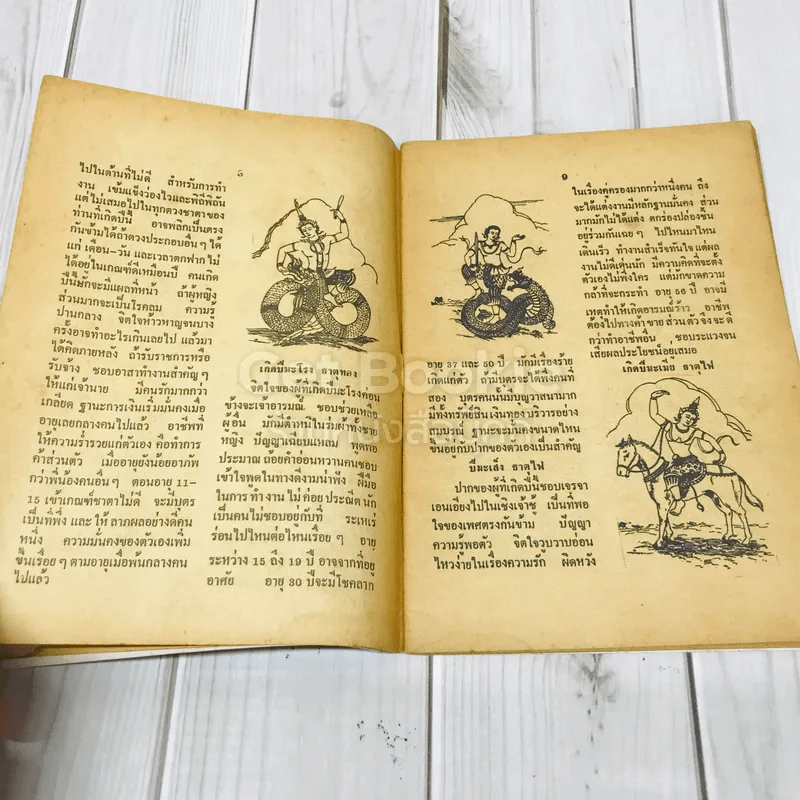 ๘
ไปในด้านที่ไม่ดี สำหรับการทำ
งาน เข้มแข็งว่องไวและพิถีพิถัน
แต่ไม่เสมอไปในทุกดวงชาตาของ
ท่านที่เกิดปีนี้ อาจพลิกเป็นตรง
กันข้ามได้ถ้าดวงประกอบอื่นๆ ได้
แก่ เดือน-วัน และเวลาตกฟาก ไม่
ได้อยู่ในเกณฑ์ดีเหมือนปี คนเกิด
ปีนี้มักจะมีแผลที่หน้า ถ้าผู้หญิง
ส่วนมากจะเป็นโรคลม ความรู้
ปานกลาง จิตใจห้าวหาญจนบาง
ครั้งอาจทำอะไรเกินเลยไป แล้วมา
ได้คิดภายหลัง ถ้ารับราชการหรือ
รับจ้าง ชอบอาสาทำงานสำคัญๆ
ให้แก่เจ้านาย มีคนรักมากกว่า
เกลียด ฐานะการเงินเริ่มมั่นคงเมื่อ
อายุเลยกลางคนไปแล้ว อาชีพที่
ให้ความร่ำรวยแก่ตัวเอง คือทำการ
ค้าส่วนตัว เมื่ออายุยังน้อยอาภัพ
กว่าพี่น้องคนอื่นๆ ตอนอายุ 11–
15 เข้าเกณฑ์ชาตาไม่ดี จะมีบุตร
เป็นที่พึ่ง และ ให้ ลาภผลอย่างดีคน
หนึ่ง ความมั่นคงของตัวเองเพิ่ม
ขึ้นเรื่อยๆ ตามอายุเมื่อพ้นกลางคน
ไปแล้ว
เกิดปีมะโรง ธาตุทอง
จิตใจของผู้ที่เกิดปีมะโรงค่อน
ข้างจะเจ้าอารมณ์ ชอบช่วยเหลือ
ผู้อื่น มักมีตำหนิในร่มผ้าทั้งชาย
หญิง ปัญญาเฉียบแหลม พูดพอ
ประมาณ ถ้อยคำอ่อนหวานคนชอบ
เข้าใจพูดในทางดีงามน่าฟัง ฝีมือ
ในการ ทำงาน ไม่ ค่อย ประณีต นัก
เป็นคนไม่ชอบอยู่กับที่ ระเหเร่
ร่อนไปไหนต่อไหนเรื่อยๆ อายุ
ระหว่าง 15 ถึง 19 ปี อาจจากที่อยู่
อาศัย อายุ 30 ปีจะมีโชคลาภ
๙
อายุ 37 และ 50 ปี มักมีเรื่องร้าย
เกิดแก่ตัว ถ้ามีบุตรจะได้พึ่งคนที่
สอง บุตรคนนั้นมีบุญวาสนามาก
มีทั้งทรัพย์สินเงินทอง บริวารอย่าง
สมบูรณ์ ฐานะจะมั่นคงขนาดไหน
ขึ้นอยู่กับปากของตัวเองเป็นสำคัญ
ปีมะเส็ง ธาตุไฟ
ปากของผู้ที่เกิดปีนี้ชอบเจรจา
เอนเอียงไปในเชิงเจ้าชู้ เป็นที่พอ
ใจของเพศตรงกันข้าม ปัญญา
ความรู้พอตัว จิตใจวูบวาบอ่อน
ไหวง่ายในเรื่องความรัก ผิดหวัง
ในเรื่องคู่ครองมากกว่าหนึ่งคน ถึง
จะได้แต่งงานมีหลักฐานมั่นคง ส่วน
มากมักไม่ได้แต่ง ตกร่องปล่องชิ้น
อยู่ร่วมกันเฉยๆ ไปไหนมาไหน
เดินเร็ว ทำงานสำเร็จทันใจ แต่ผล
งานไม่ดีเด่นนัก มีความคิดที่จะตั้ง
ตัวเองไม่พึ่งใคร แต่มักขาดความ
กล้าที่จะกระทำ อายุ 56 ปี อาจมี
เหตุทำให้เกิดอารมณ์ร้าว อาชีพ
ต้องไปทางค้า ขาย ส่วน ตัว จึง จะ ดี
กว่าทำอาชีพอื่น ชอบระแวงจน
เสียผลประโยชน์อยู่เสมอ
เกิดปีมะเมีย ธาตุไฟ